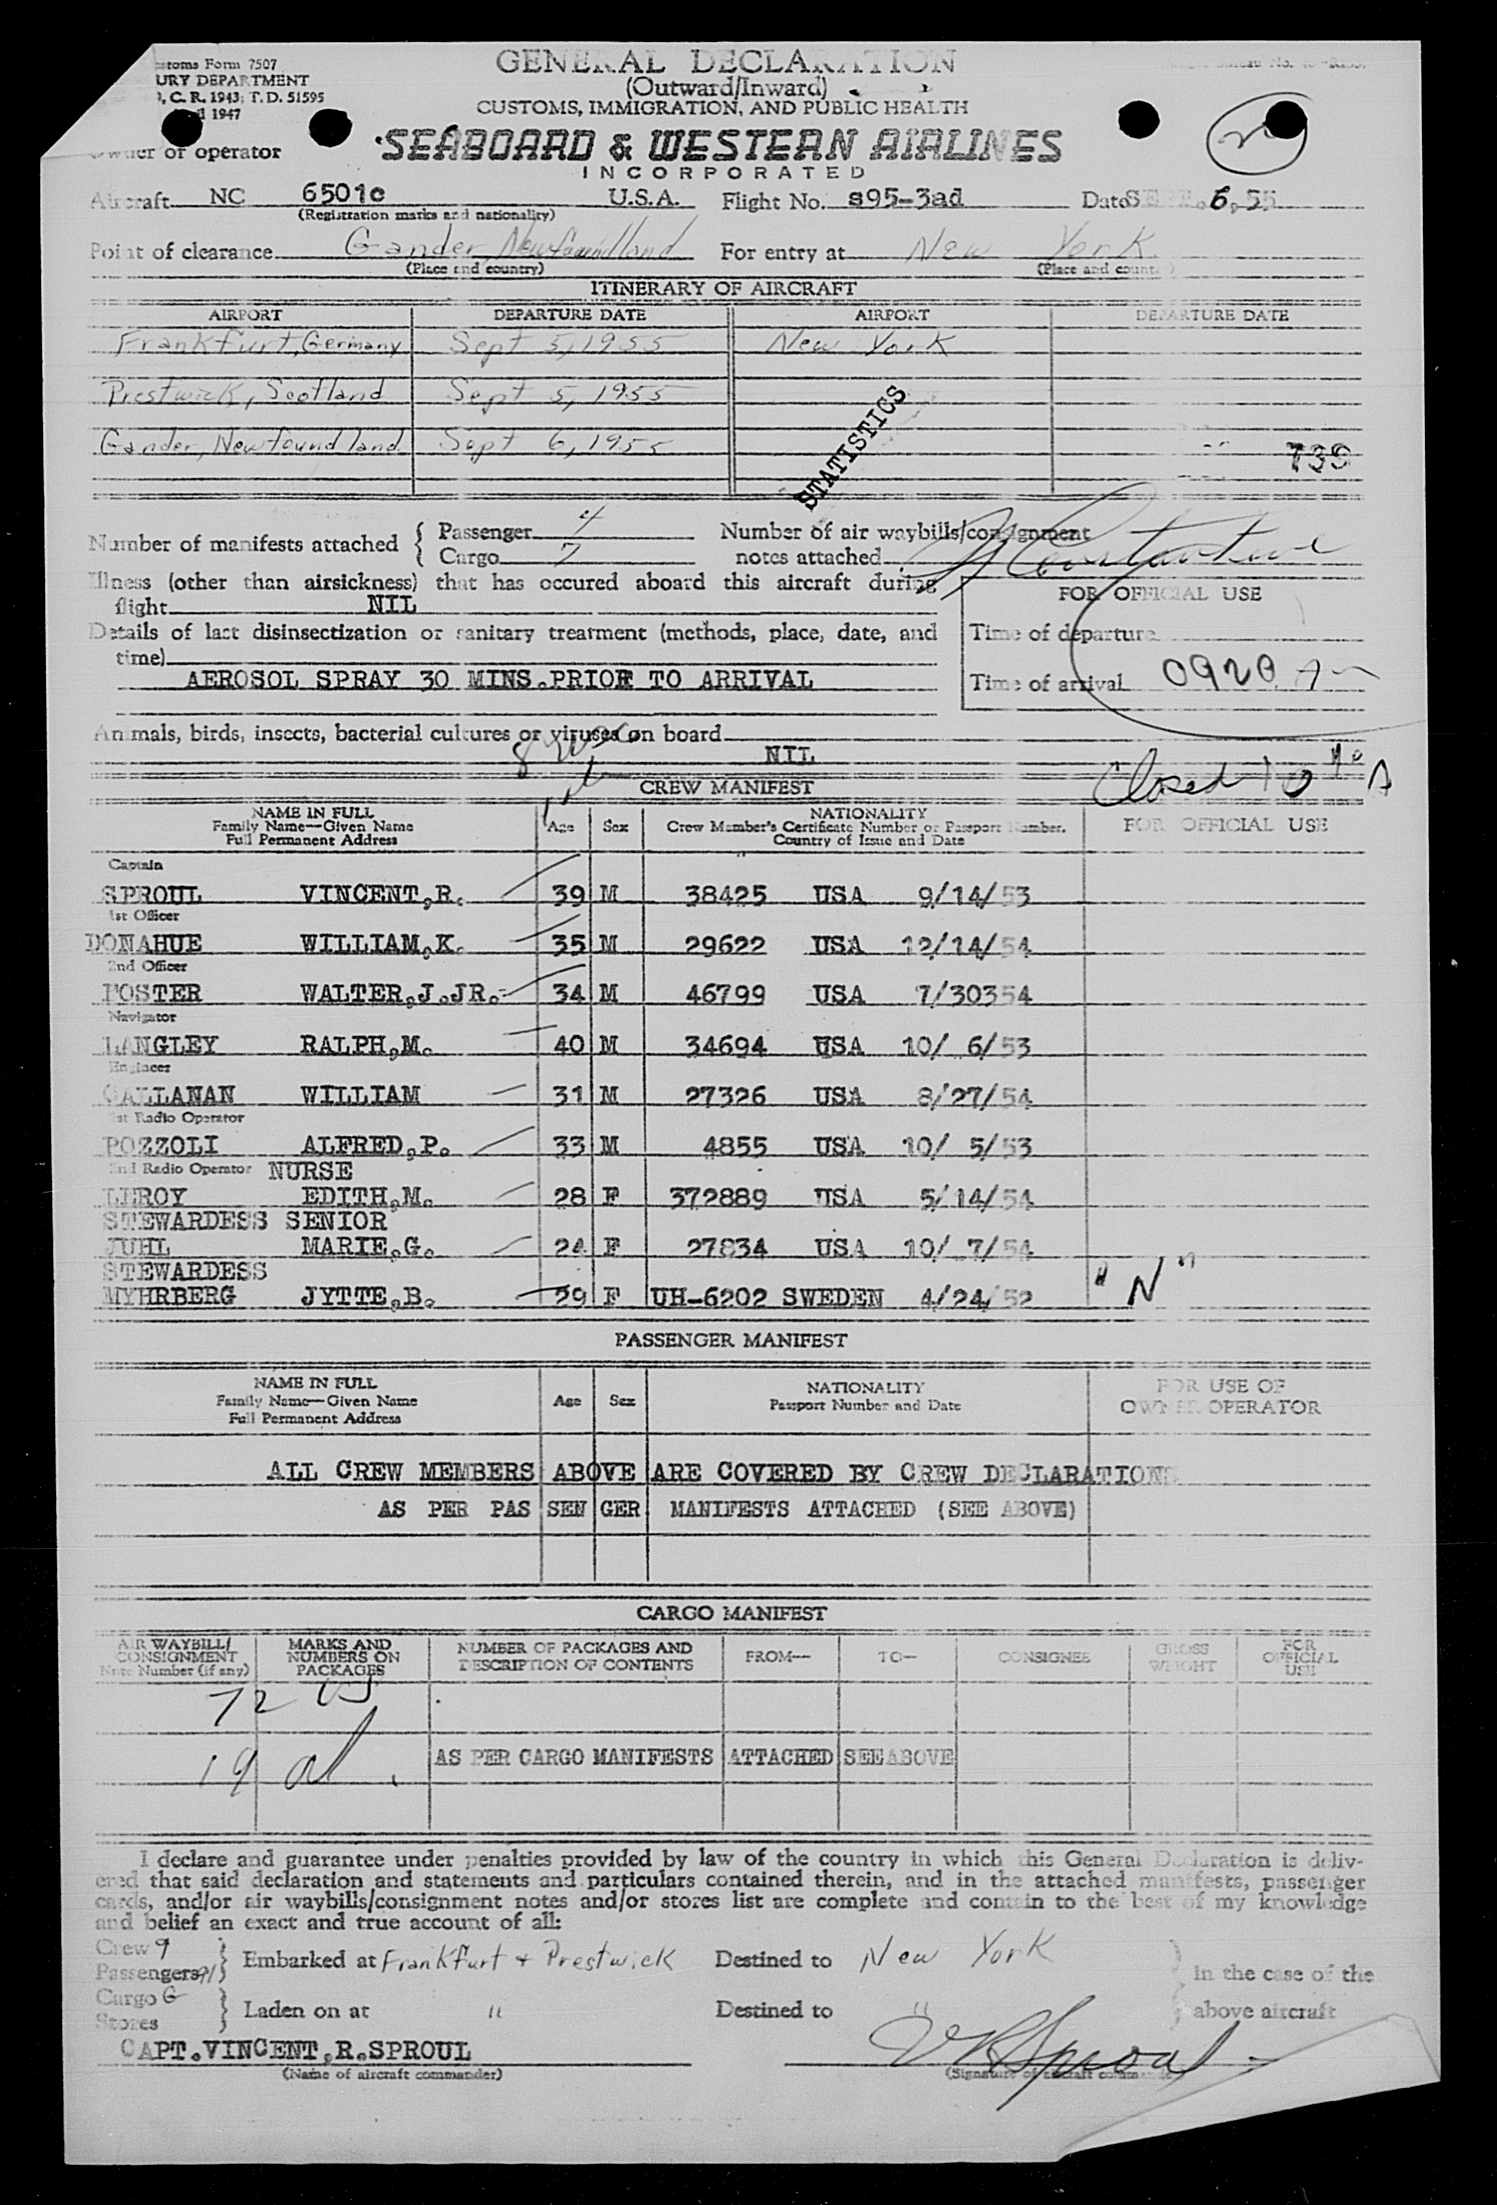 Form 7507
URY DEPARTMENT
C. R. 1943; T. D. 51595
1947
GENERAL DECLARATION
(Outward/Inward)
CUSTOMS, IMMIGRATION, AND PUBLIC HEALTH
Owner or operator
SEABOARD & WESTERN AIRLINES
INCORPORATED
Aircraft NC 6501c U.S.A. Flight No. s95-3ad Date SEPT. 6, 55
(Registration marks and nationality)
Point of clearance Gander, Newfoundland For entry at New York
(Place and country) (Place and count
ITINERARY OF AIRCRAFT
AIRPORT DEPARTURE DATE AIRPORT DEPARTURE DATE
Frankfurt, Germany Sept 5, 1955 New York
Prestwick, Scotland Sept 5, 1955
STATISTICS
Gander, Newfoundland Sept 6, 1955 739
Number of manifests attached { Passenger 4
Cargo 7
Number of air waybills/consignment
notes attached
Illness (other than airsickness) that has occured aboard this aircraft during
flight NIL
FOR OFFICIAL USE
Details of last disinsectization or sanitary treatment (methods, place, date, and
time)
Time of departure
AEROSOL SPRAY 30 MINS.PRIOR TO ARRIVAL
Time of arrival 0920 A
Animals, birds, insects, bacterial cultures or viruses on board
NIL
Closed 10
CREW MANIFEST
NAME IN FULL
Family Name—Given Name
Full Permanent Address
Age Sex
NATIONALITY
Crew Member's Certificate Number or Passport Number.
Country of Issue and Date
FOR OFFICIAL USE
Captain
SPROUL VINCENT,R. 39 M 38425 USA 9/14/53
1st Officer
DONAHUE WILLIAM,K. 35 M 29622 USA 12/14/54
2nd Officer
FOSTER WALTER,J.JR. 34 M 46799 USA 7/30354
Navigator
LANGLEY RALPH,M. 40 M 34694 USA 10/ 6/53
Engineer
CALLANAN WILLIAM 31 M 27326 USA 8/27/54
1st Radio Operator
POZZOLI ALFRED,P. 33 M 4855 USA 10/ 5/53
2nd Radio Operator NURSE
LEROY EDITH,M. 28 F 372889 USA 5/14/54
STEWARDESS SENIOR
JUHL MARIE,G. 24 F 27834 USA 10/ 7/54
STEWARDESS
MYHRBERG JYTTE,B. 29 F UH-6202 SWEDEN 4/24/52 "N"
PASSENGER MANIFEST
NAME IN FULL
Family Name—Given Name
Full Permanent Address
Age Sex
NATIONALITY
Passport Number and Date
FOR USE OF
OWNER OPERATOR
ALL CREW MEMBERS ABOVE ARE COVERED BY CREW DECLARATIONS
AS PER PAS SEN GER MANIFESTS ATTACHED (SEE ABOVE)
CARGO MANIFEST
AIR WAYBILL/
CONSIGNMENT
Note Number (if any)
MARKS AND
NUMBERS ON
PACKAGES
NUMBER OF PACKAGES AND
DESCRIPTION OF CONTENTS
FROM— TO— CONSIGNEE
GROSS
WEIGHT
FOR
OFFICIAL
USE
72 US
19 al
AS PER CARGO MANIFESTS ATTACHED SEE ABOVE
I declare and guarantee under penalties provided by law of the country in which this General Declaration is deliv-
ered that said declaration and statements and particulars contained therein, and in the attached manifests, passenger
cards, and/or air waybills/consignment notes and/or stores list are complete and contain to the best of my knowledge
and belief an exact and true account of all:
Crew 9
Passengers 91 } Embarked at Frankfurt + Prestwick Destined to New York } in the case of the
Cargo G
Stores } Laden on at " Destined to " } above aircraft
CAPT.VINCENT,R.SPROUL VRSproul
(Name of aircraft commander) (Signature of aircraft comman